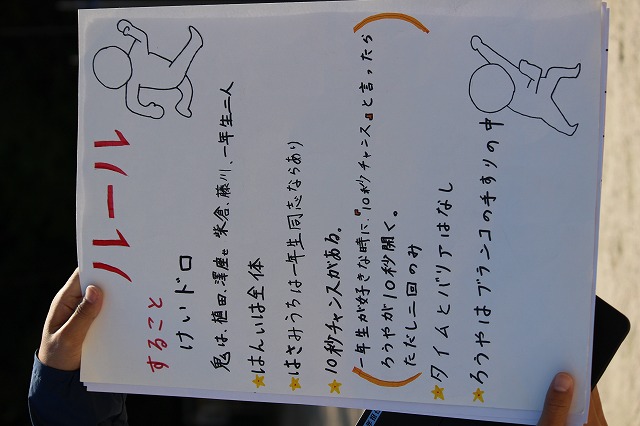 ルール
すること
けいドロ
鬼は、植田、澤座と柴倉、藤川、一年生二人
はんいは全体
はさみうちは一年生同志ならあり
10秒チャンスがある。
(一年生が好きな時に、『10秒チャンス』と言ったら
ろうやが10秒開く。
ただし二回のみ)
タイムとバリアはなし
ろうやはブランコの手すりの中